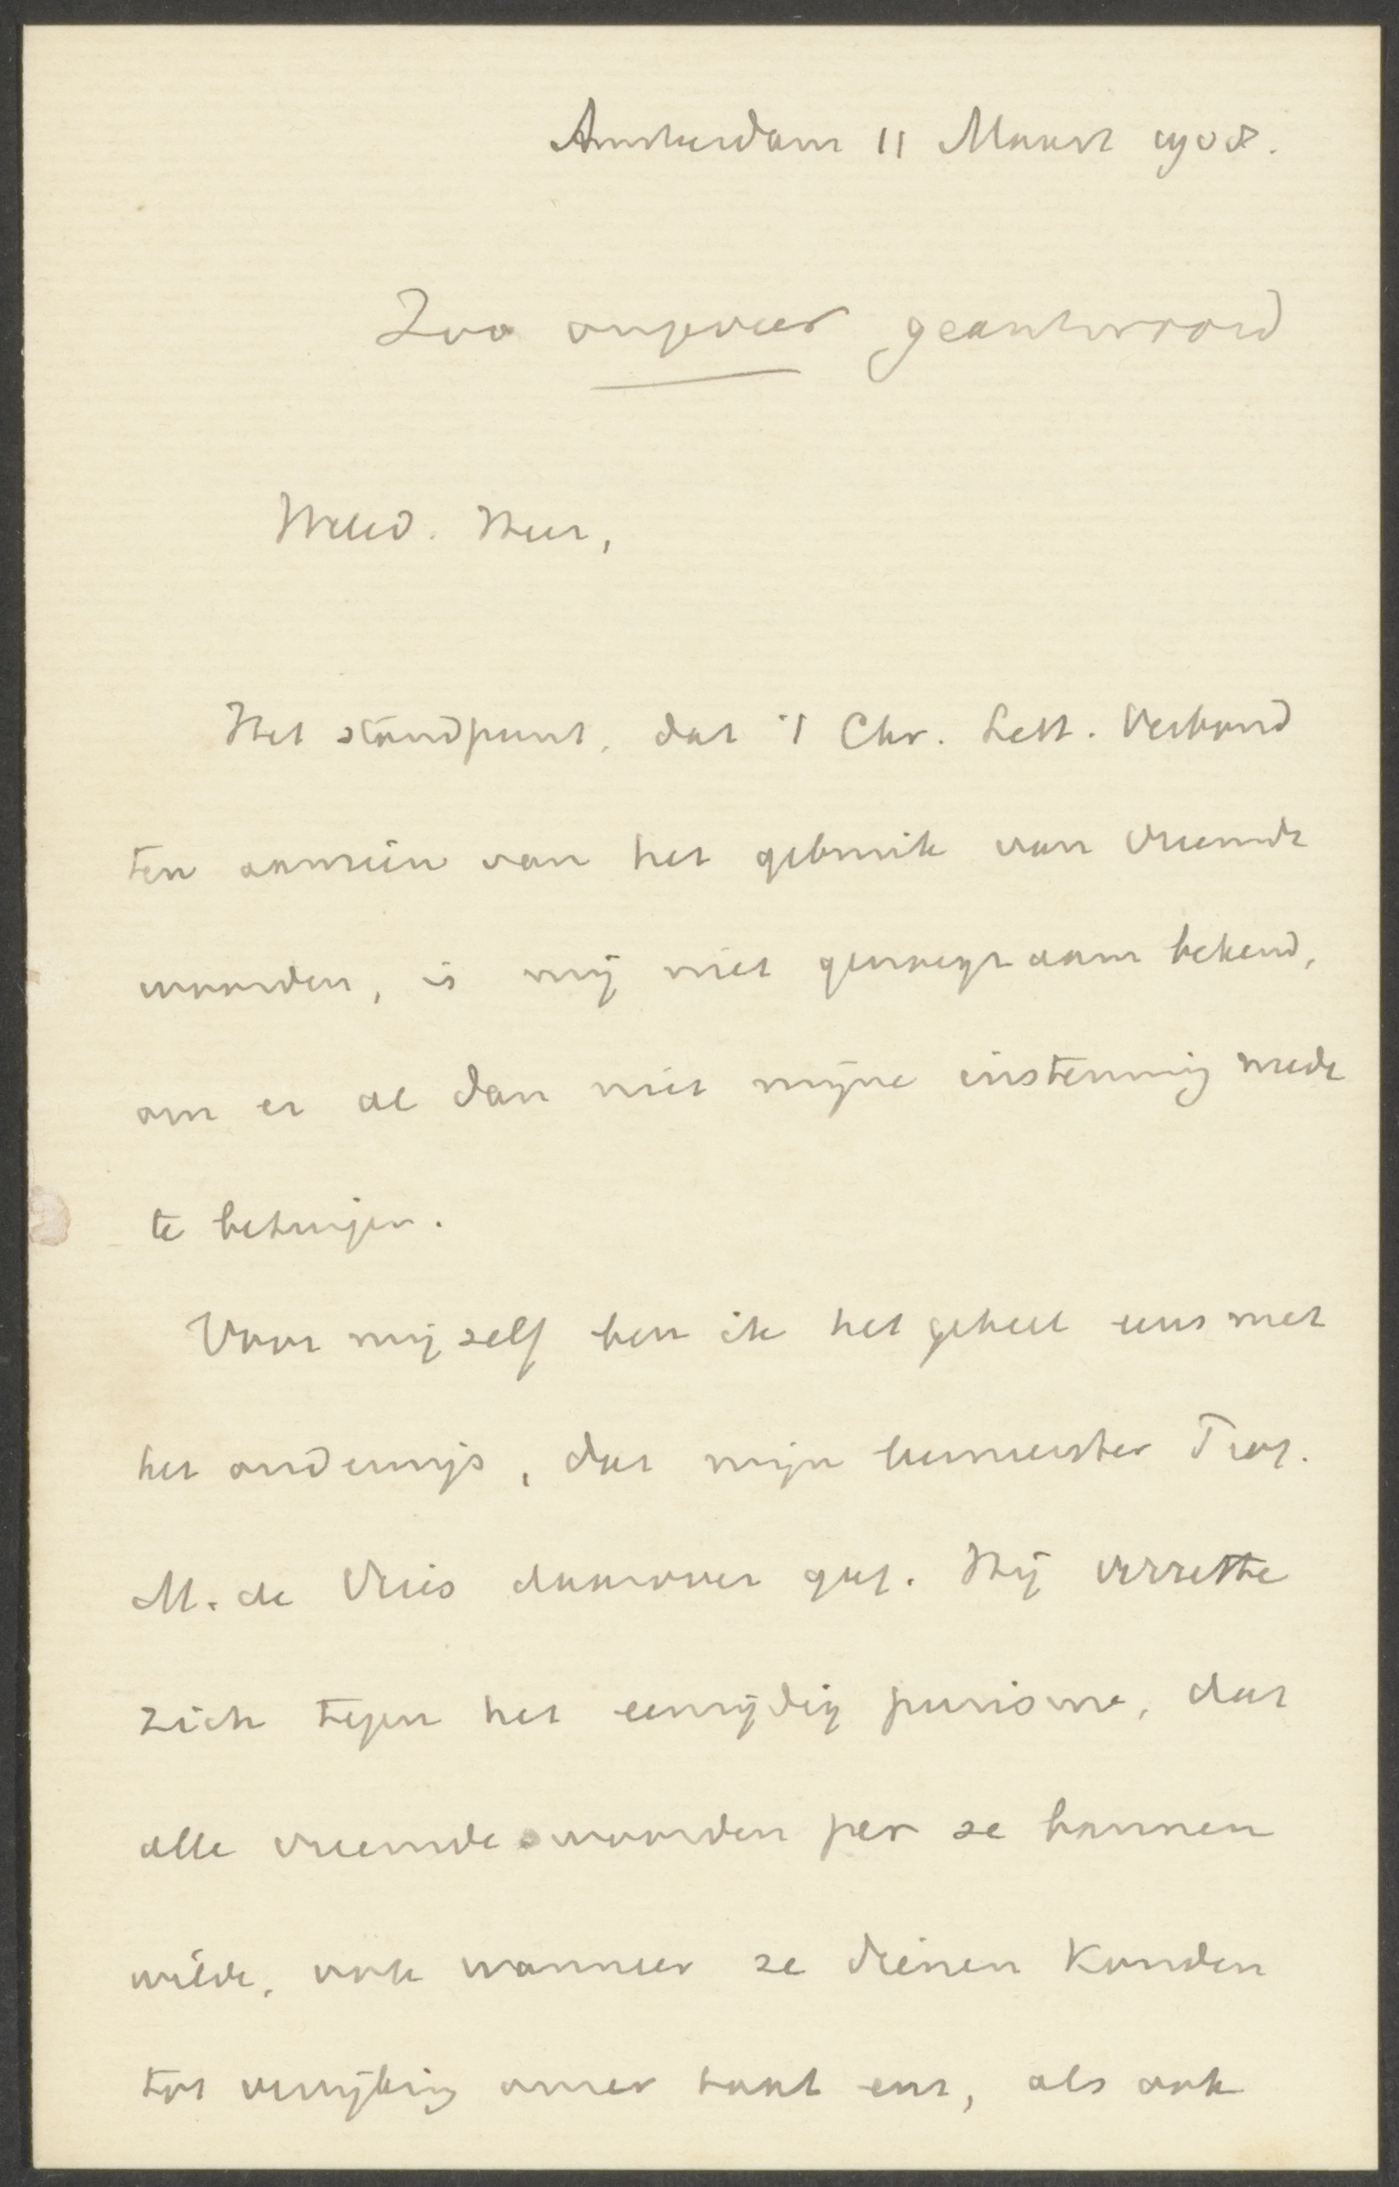 Amsterdam 11 Maart 1908.
Zoo ongeveer geantwoord
WelEd. Heer,
Het standpunt, dat 't Chr. Lett. Verbond
ten aanzien van het gebruik van vreemde
woorden, is mij niet genoegzaam bekend,
om er al dan niet mijne instemming mede
te betuigen.
Voor mij zelf ben ik het geheel eens met
het onderwijs, dat mijn leermeester Prof.
M. de Vries daarover gaf. Hij verzette
zich tegen het eenzijdig purisme, dat
alle vreemde woorden per se bannen
wilde, ook wanneer ze dienen konden
tot verrijking onzer taal enz, als ook